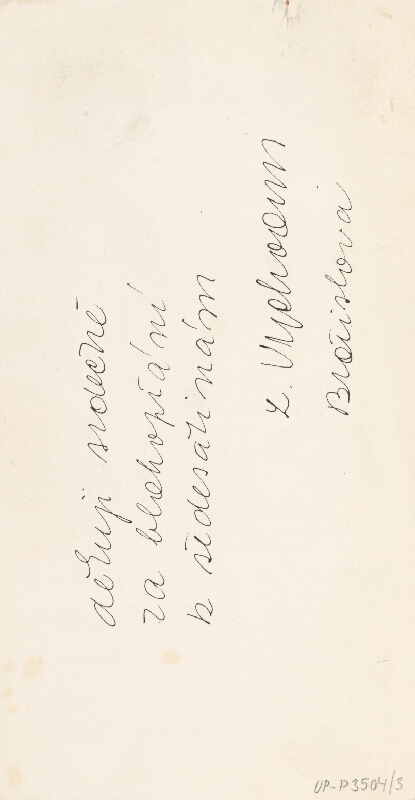 děkuji srdečně
za blahopřání
k šedesátinám
L.
Bratislava
UP-P 3504/3